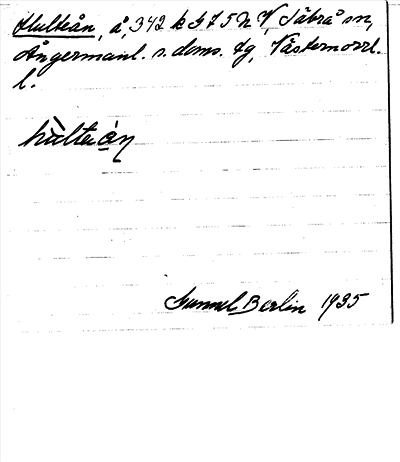 Hulteån, å, 342 k G 7 5 N V, Säbrå sn,
Ångermanl. s. doms. tg, Västernorrl.
l.
hùlteàn
Gunnel Berlin 1935